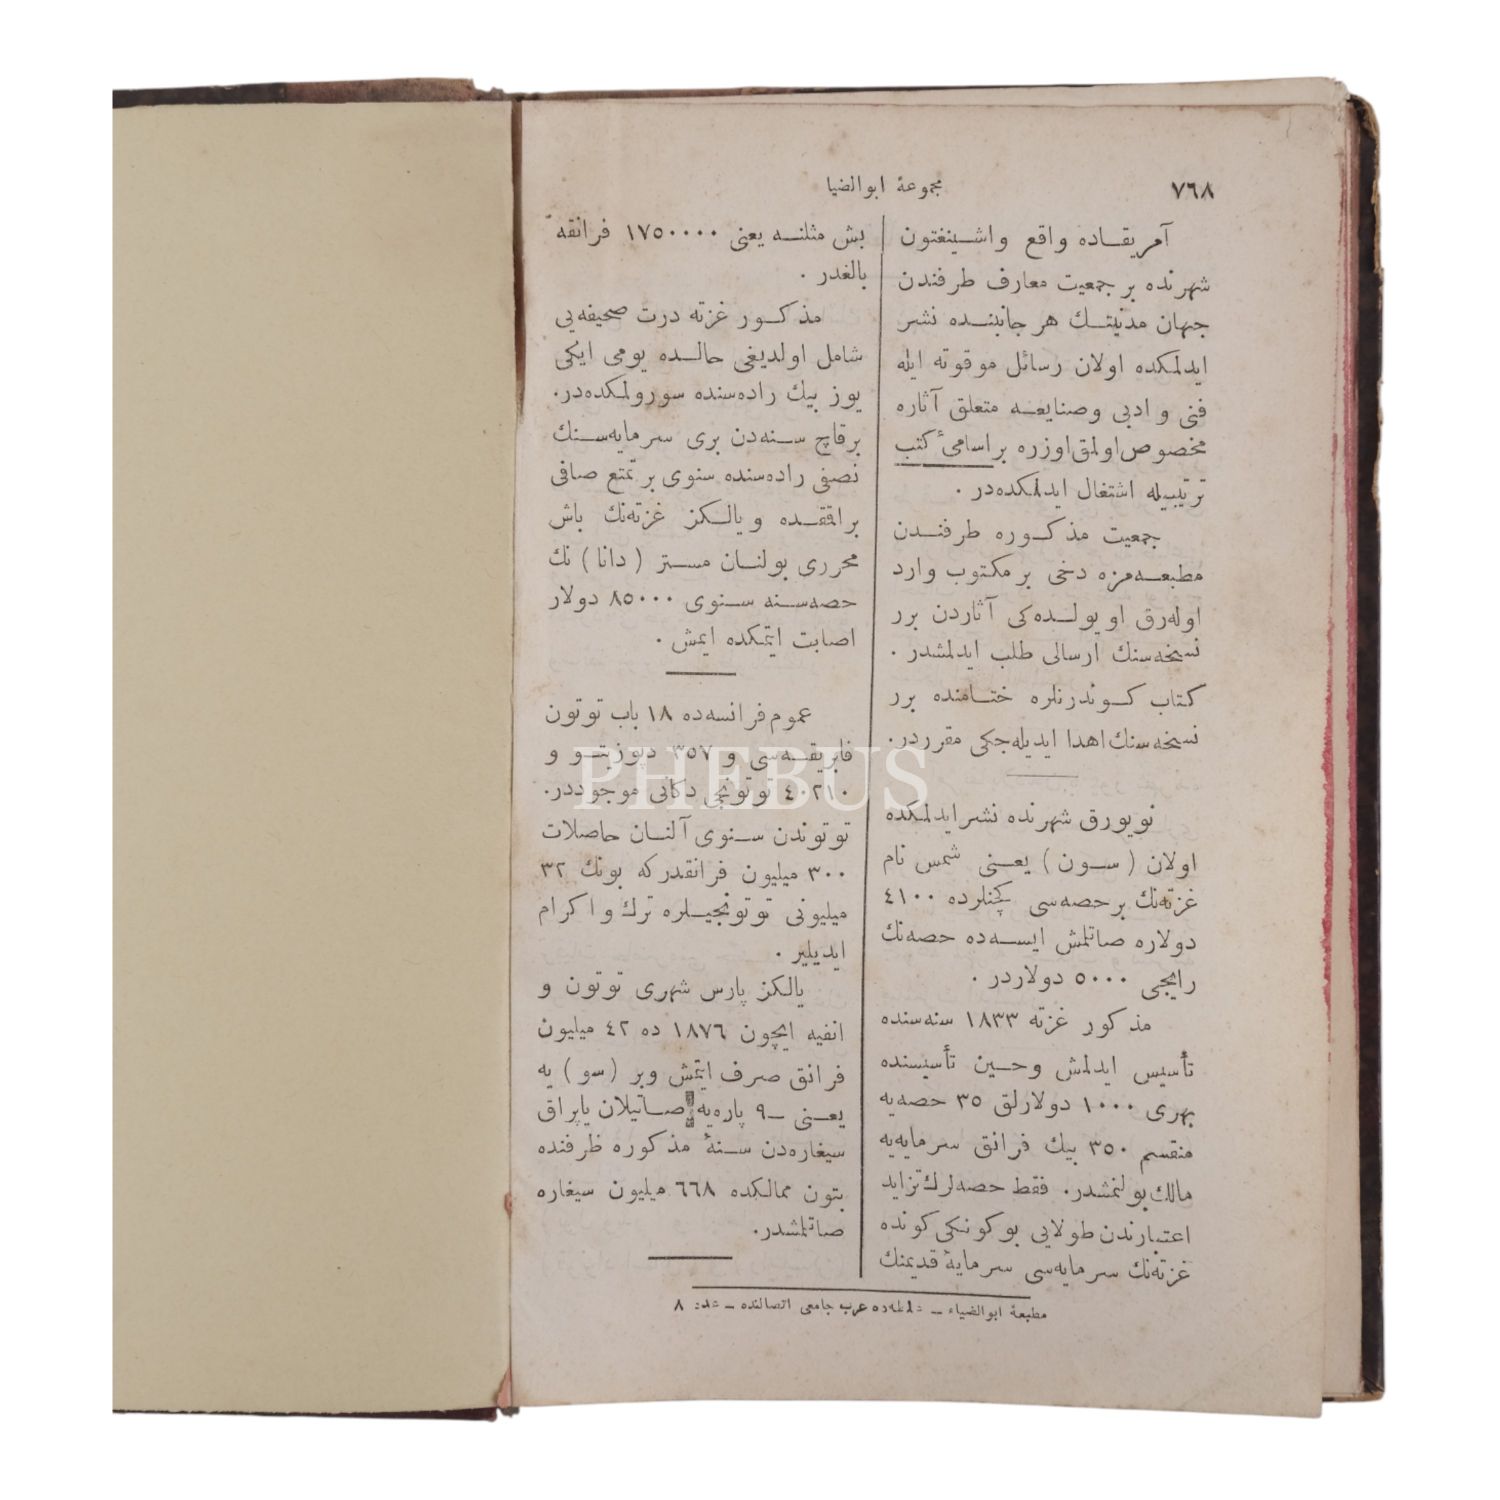 ٧٦٨
مجموعهٔ ابوالضیا
آمریقاده واقع واشینغتون
شهرنده بر جمعیت معارف طرفندن
جهان مدنیتك هر جانبنده نشر
ایدلمكده اولان رسائل موقوته ایله
فنی و ادبی وصنایعه متعلق آثاره
مخصوص اولمق اوزره بر اسامیٔ كتب
ترتیبیله اشتغال ایدلمكده‌در .
جمعیت مذكوره طرفندن
مطبعه‌مزه دخی بر مكتوب وارد
اوله‌رق او یولده‌كی آثاردن برر
نسخه‌سنك ارسالی طلب ایدلمشدر .
كتاب كوندرنلره ختامنده برر
نسخه‌سنك اهدا ایدیله‌جكی مقرردر.
نویورق شهرنده نشر ایدلمكده
اولان ( سون ) یعنی شمس نام
غزته‌نك بر حصه‌سی كچنلرده ٤١٠٠
دولاره صاتلمش ایسه‌ده حصه‌نك
رایجی ٥٠٠٠ دولاردر .
مذكور غزته ١٨٣٣ سنه‌سنده
تأسیس ایدلمش وحین تأسیسنده
بهری ١٠٠٠ دولارلق ٣٥ حصه‌یه
منقسم ٣٥٠ بیك فرانق سرمایه‌یه
مالك بولنمشدر. فقط حصه‌لرك تزاید
اعتبارندن طولایی بو كونكی كونده
غزته‌نك سرمایه‌سی سرمایهٔ قدیمنك
بش مثلنه یعنی ١٧٥٠٠٠٠ فرانقه
بالغدر .
مذكور غزته درت صحیفه‌یی
شامل اولدیغی حالده یومی ایكی
یوز بیك راده‌سنده سورولمكده‌در.
بر قاچ سنه‌دن بری سرمایه‌سنك
نصفی راده‌سنده سنوی بر تمتع صافی
براقمقده ویالكز غزته‌نك باش
محرری بولنان مستر ( دانا ) نك
حصه‌سنه سنوی ٨٥٠٠٠ دولار
اصابت ایتمكده ایمش .
عموم فرانسه‌ده ١٨ باب توتون
فابریقه‌سی و ٣٥٧ دپوزیتو و
٤٠٢١٠ توتونجی دكانی موجوددر.
توتوندن سنوی آلنان حاصلات
٣٠٠ میلیون فرانقدركه بونك ٣٢
میلیونی توتونجیلره ترك و اكرام
ایدیلیر .
یالكز پارس شهری توتون و
انفیه ایچون ١٨٧٦ ده ٤٢ میلیون
فرانق صرف ایتمش وبر ( سو ) یه
یعنی ـ ٩ پاره‌یه صاتیلان یاپراق
سیغاره‌دن سنهٔ مذكوره ظرفنده
بتون ممالكده ٦٦٨ میلیون سیغاره
صاتلمشدر.
مطبعهٔ ابوالضیاء ـ غلطه‌ده عرب جامعی اتصالنده ـ عدد ٨
PHEBUS